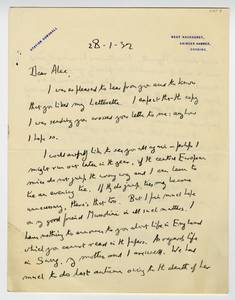 STATION GOMSHALL
WEST HACKHURST,
ABINGER HAMMER,
DORKING.
28-1-32
Dear Alec,
I was so pleased to hear from you and to know
that you liked my Letter. I expect that the copy
I was sending you crossed your letter to me: anyhow
I hope so.
I would awfully like to see you all again — perhaps I
might run out later in the year, if the central European
mice do not gnaw the way up and I can seem to
be an evening tie. If they do gnaw, ties may become
unnecessary, there's that too. But I put much hope
in my good friend Mussolini in all such matters. I
have nothing to announce to you about life in England
which you cannot read in the papers. As regards life
in Surrey, my mother and I are well. We had
much to do last autumn owing to the death of her